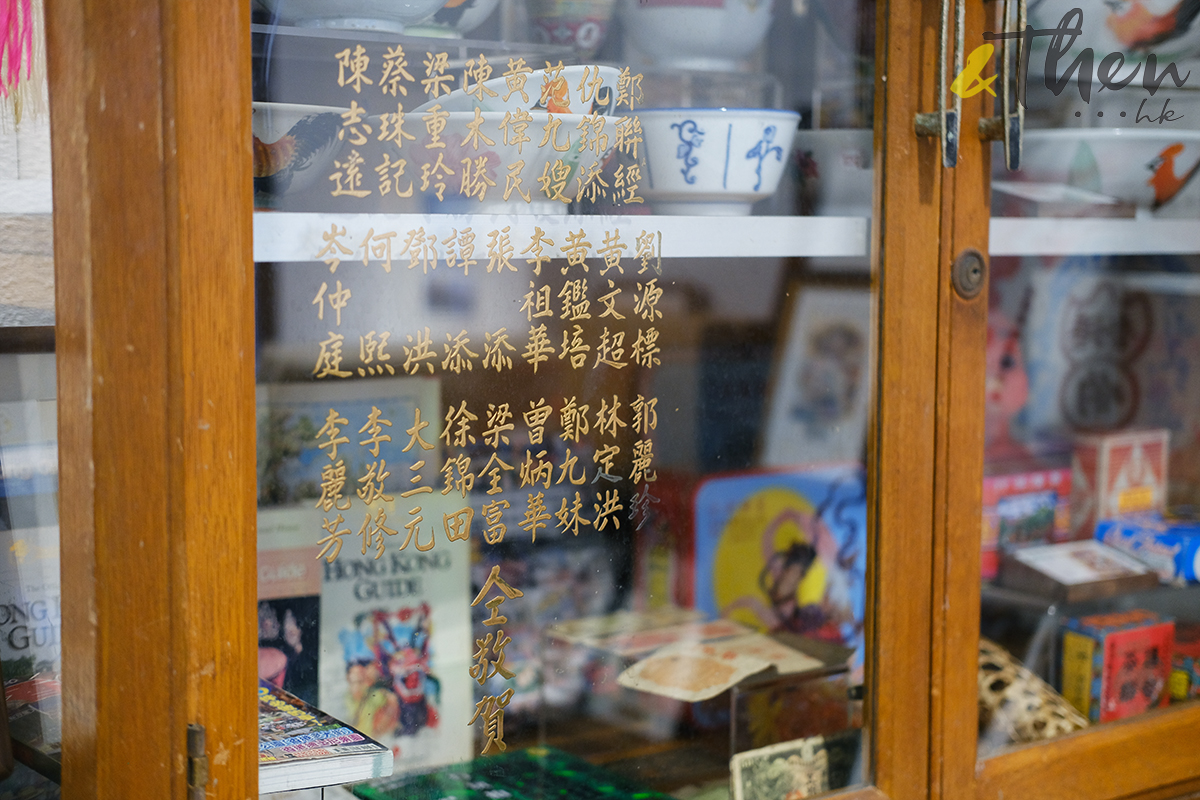 鄭聯經
仇錦添
范九嫂
黃偉民
陳木勝
梁重玲
蔡珠記
陳志遠
劉源標
黃文超
黃鑑培
李祖華
張添
譚添
鄧洪
何熙
岑仲庭
郭麗珍
林定洪
鄭九妹
曾炳華
梁全富
徐錦田
大三元
李敬修
李麗芳
仝敬賀
HONG KONG
GUIDE
Guide
&Then
...hk